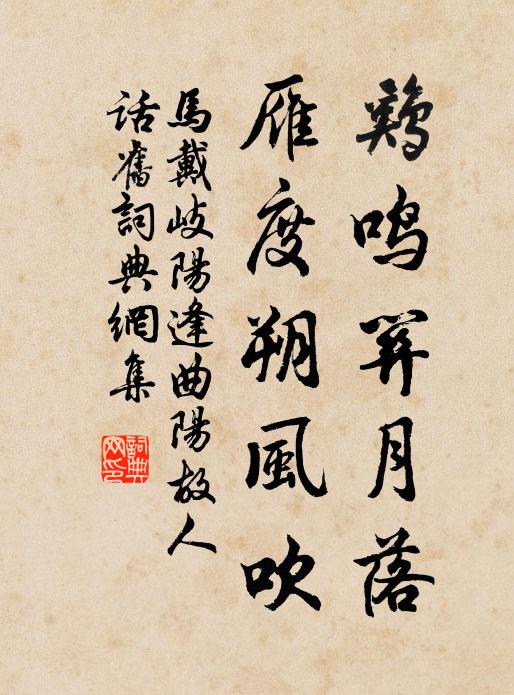 鷄鳴關月落
雁度朔風吹
馬戴岐陽逢曲陽故人
話舊詞典網集
詞典
网印